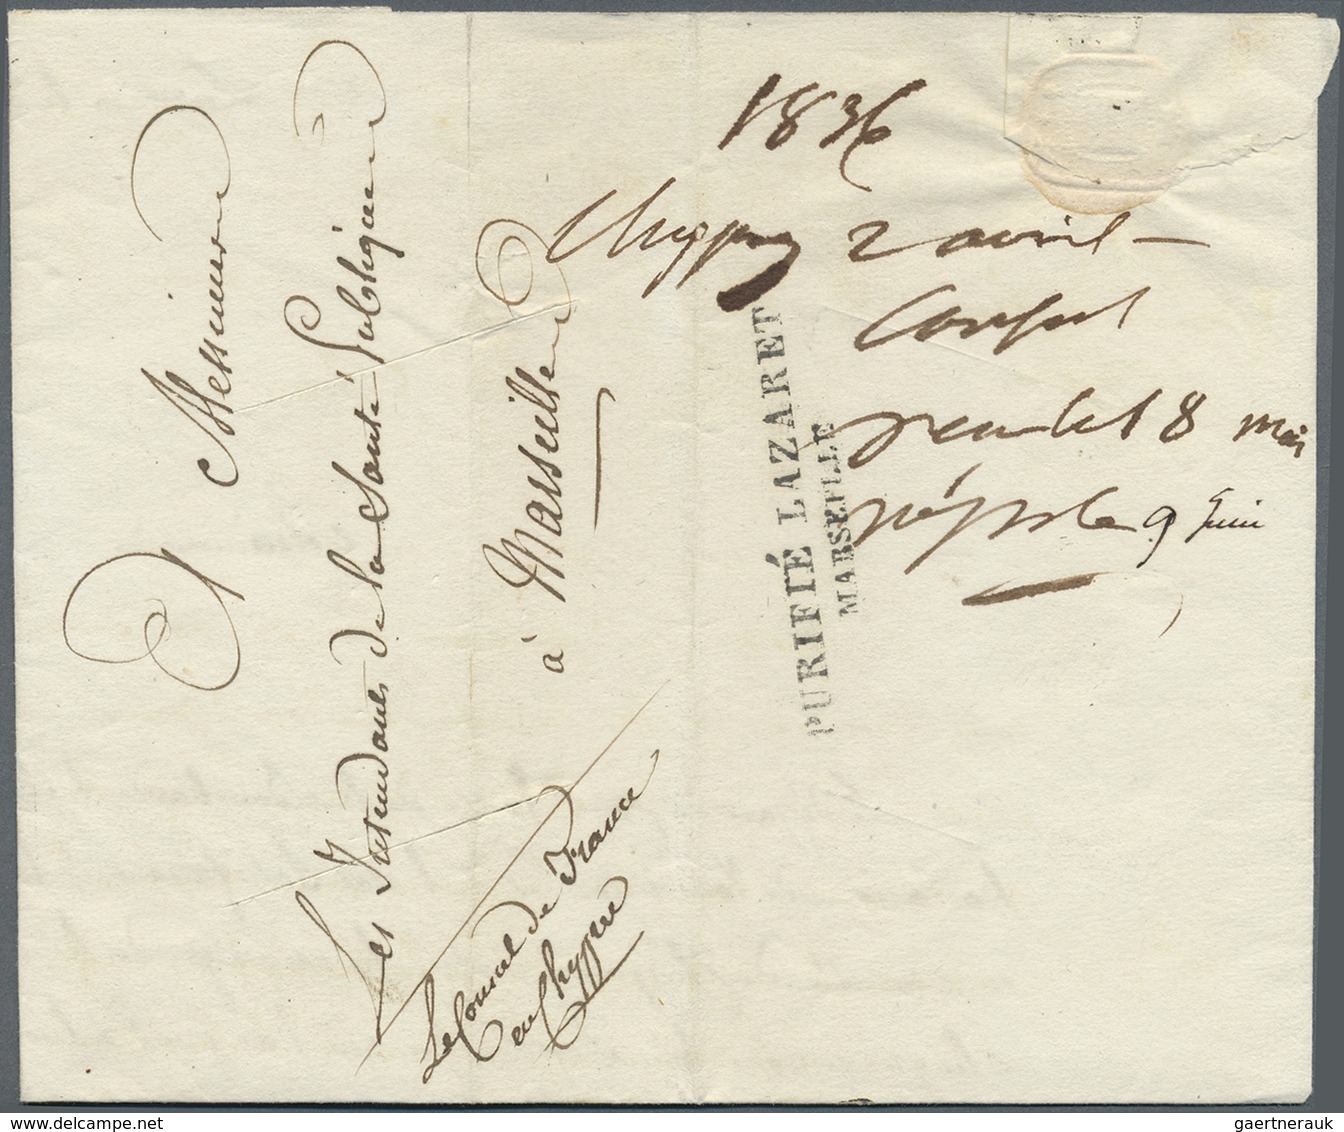 Messieurs
Les Intendants de la Santé Publique
à Marseille
Le Consul de France
en Chypre
1836
Chypre 2 avril
Consul
18 mai
rép le 9 Juin
PURIFIÉ LAZARET
MARSEILLE
gaertnerauk